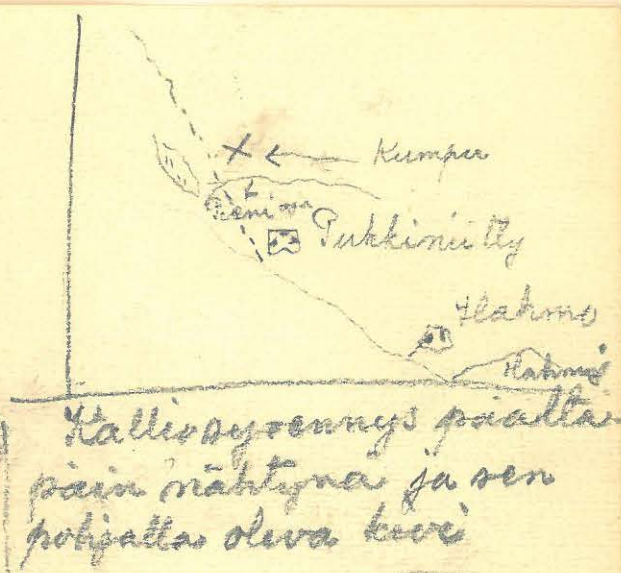 Kumpu
Pieni oja
Pukkiniitty
Hahmo
Hahmo
Kalliosyvennys päältä
päin nähtynä ja sen
pohjalla oleva kivi